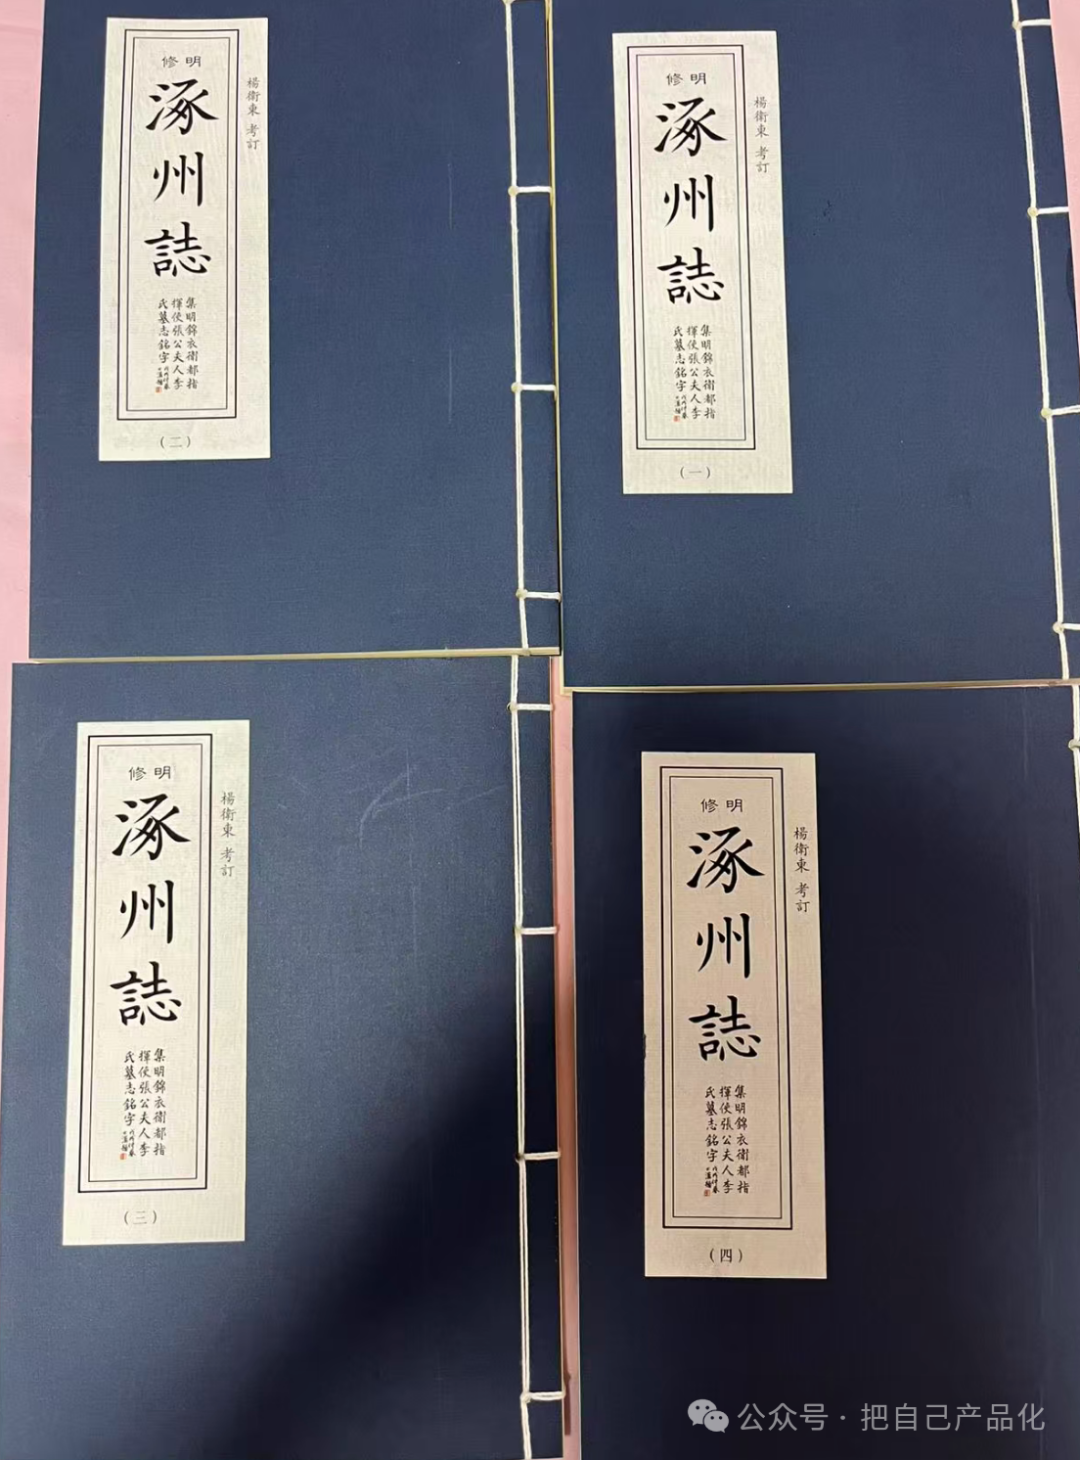 楊衛東 考訂
明修
涿州誌
集明錦衣衛都指
揮使張公夫人李
氏墓志銘字
（一）
楊衛東 考訂
明修
涿州誌
集明錦衣衛都指
揮使張公夫人李
氏墓志銘字
（二）
楊衛東 考訂
明修
涿州誌
集明錦衣衛都指
揮使張公夫人李
氏墓志銘字
（三）
楊衛東 考訂
明修
涿州誌
集明錦衣衛都指
揮使張公夫人李
氏墓志銘字
（四）
公众号·把自己产品化